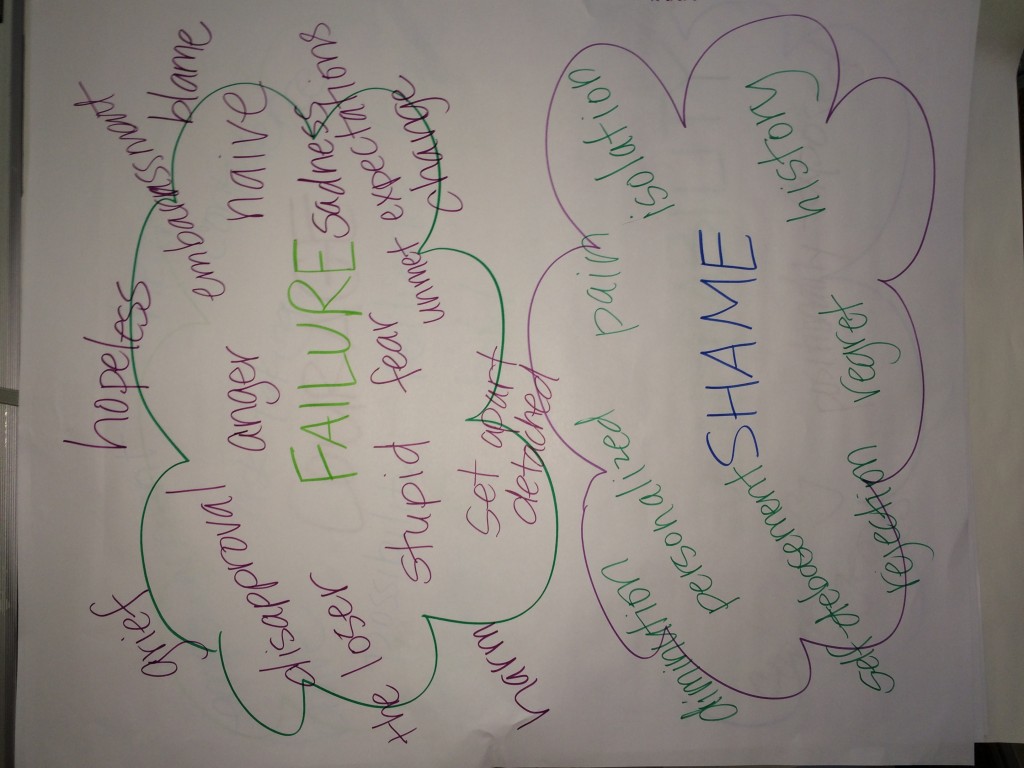 grief
hopeless
embarassment
blame
disapproval
anger
naive
the loser
FAILURE
sadness
stupid
fear
unmet expectations
change
set apart
detached
harm
pain
isolation
personalized
SHAME
history
self-debacement
rejection
regret